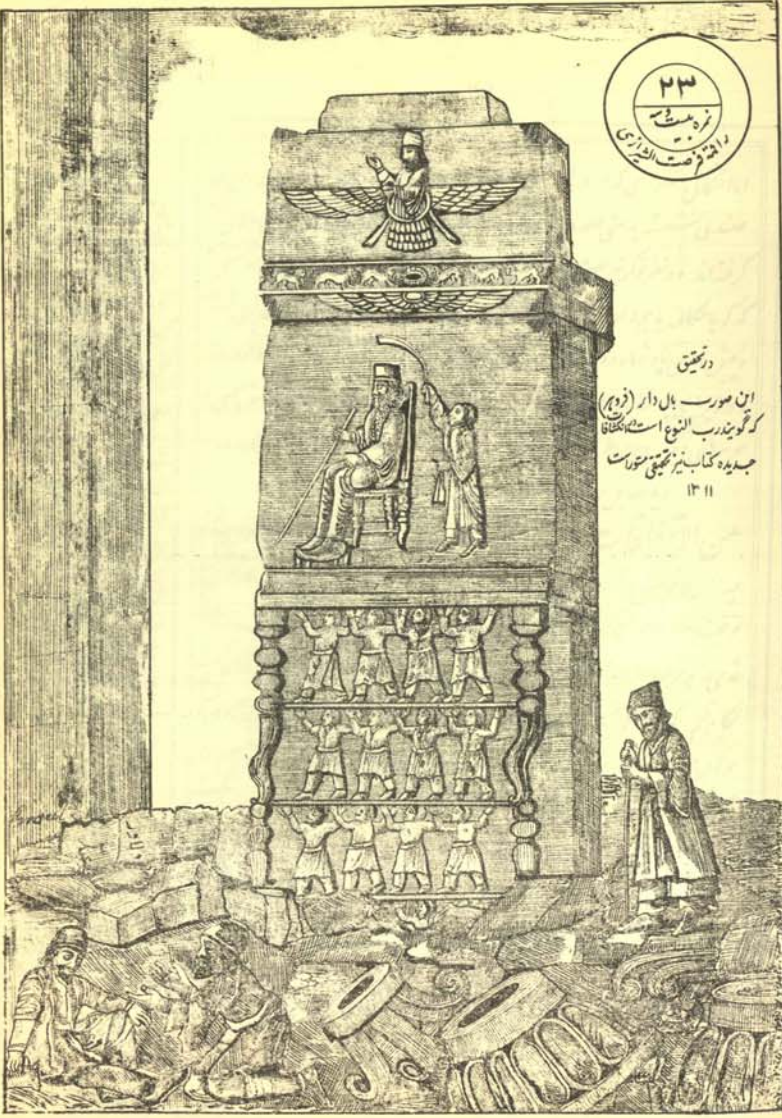 ۲۳
نمره بیست و سه
راقمه فرصت الشیرازی
در تحقیق
این صورت بال دار (فروهر)
که گویند رب النوع است در انکشافات
جدیده کتاب نیز تحقیقی مسطور است
۱۳۱۱